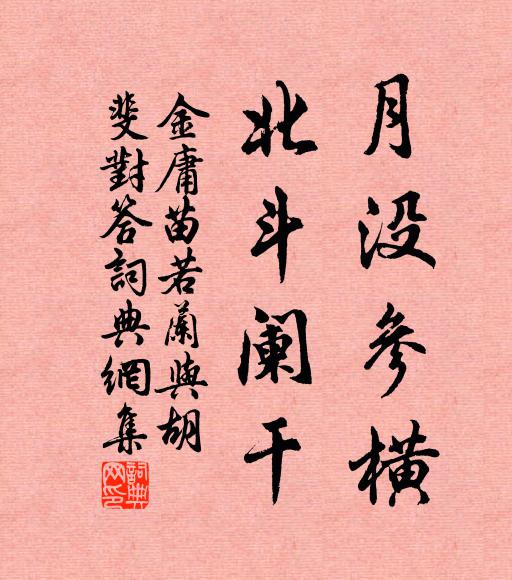 月没參橫
北斗阑干
金庸苗若蘭與胡
斐對答詞典網集
詞典網印